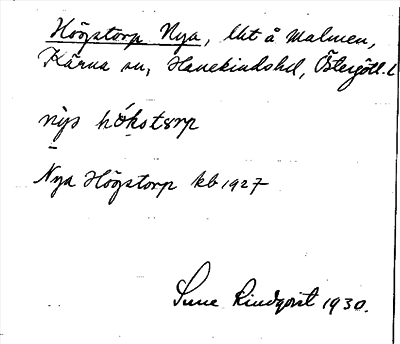 Högstorp Nya, lht å Malmen,
Kärna sn, Hanekinds hd, Östergötl. l
nẏa hókstɔrp
Nya Högstorp kb 1927
Sune Lindqvist 1930.